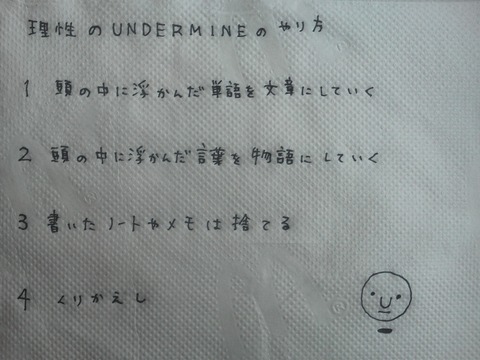 理性のUNDERMINEのやり方
1 頭の中に浮かんだ単語を文章にしていく
2 頭の中に浮かんだ言葉を物語にしていく
3 書いたノートやメモは捨てる
4 くりかえし